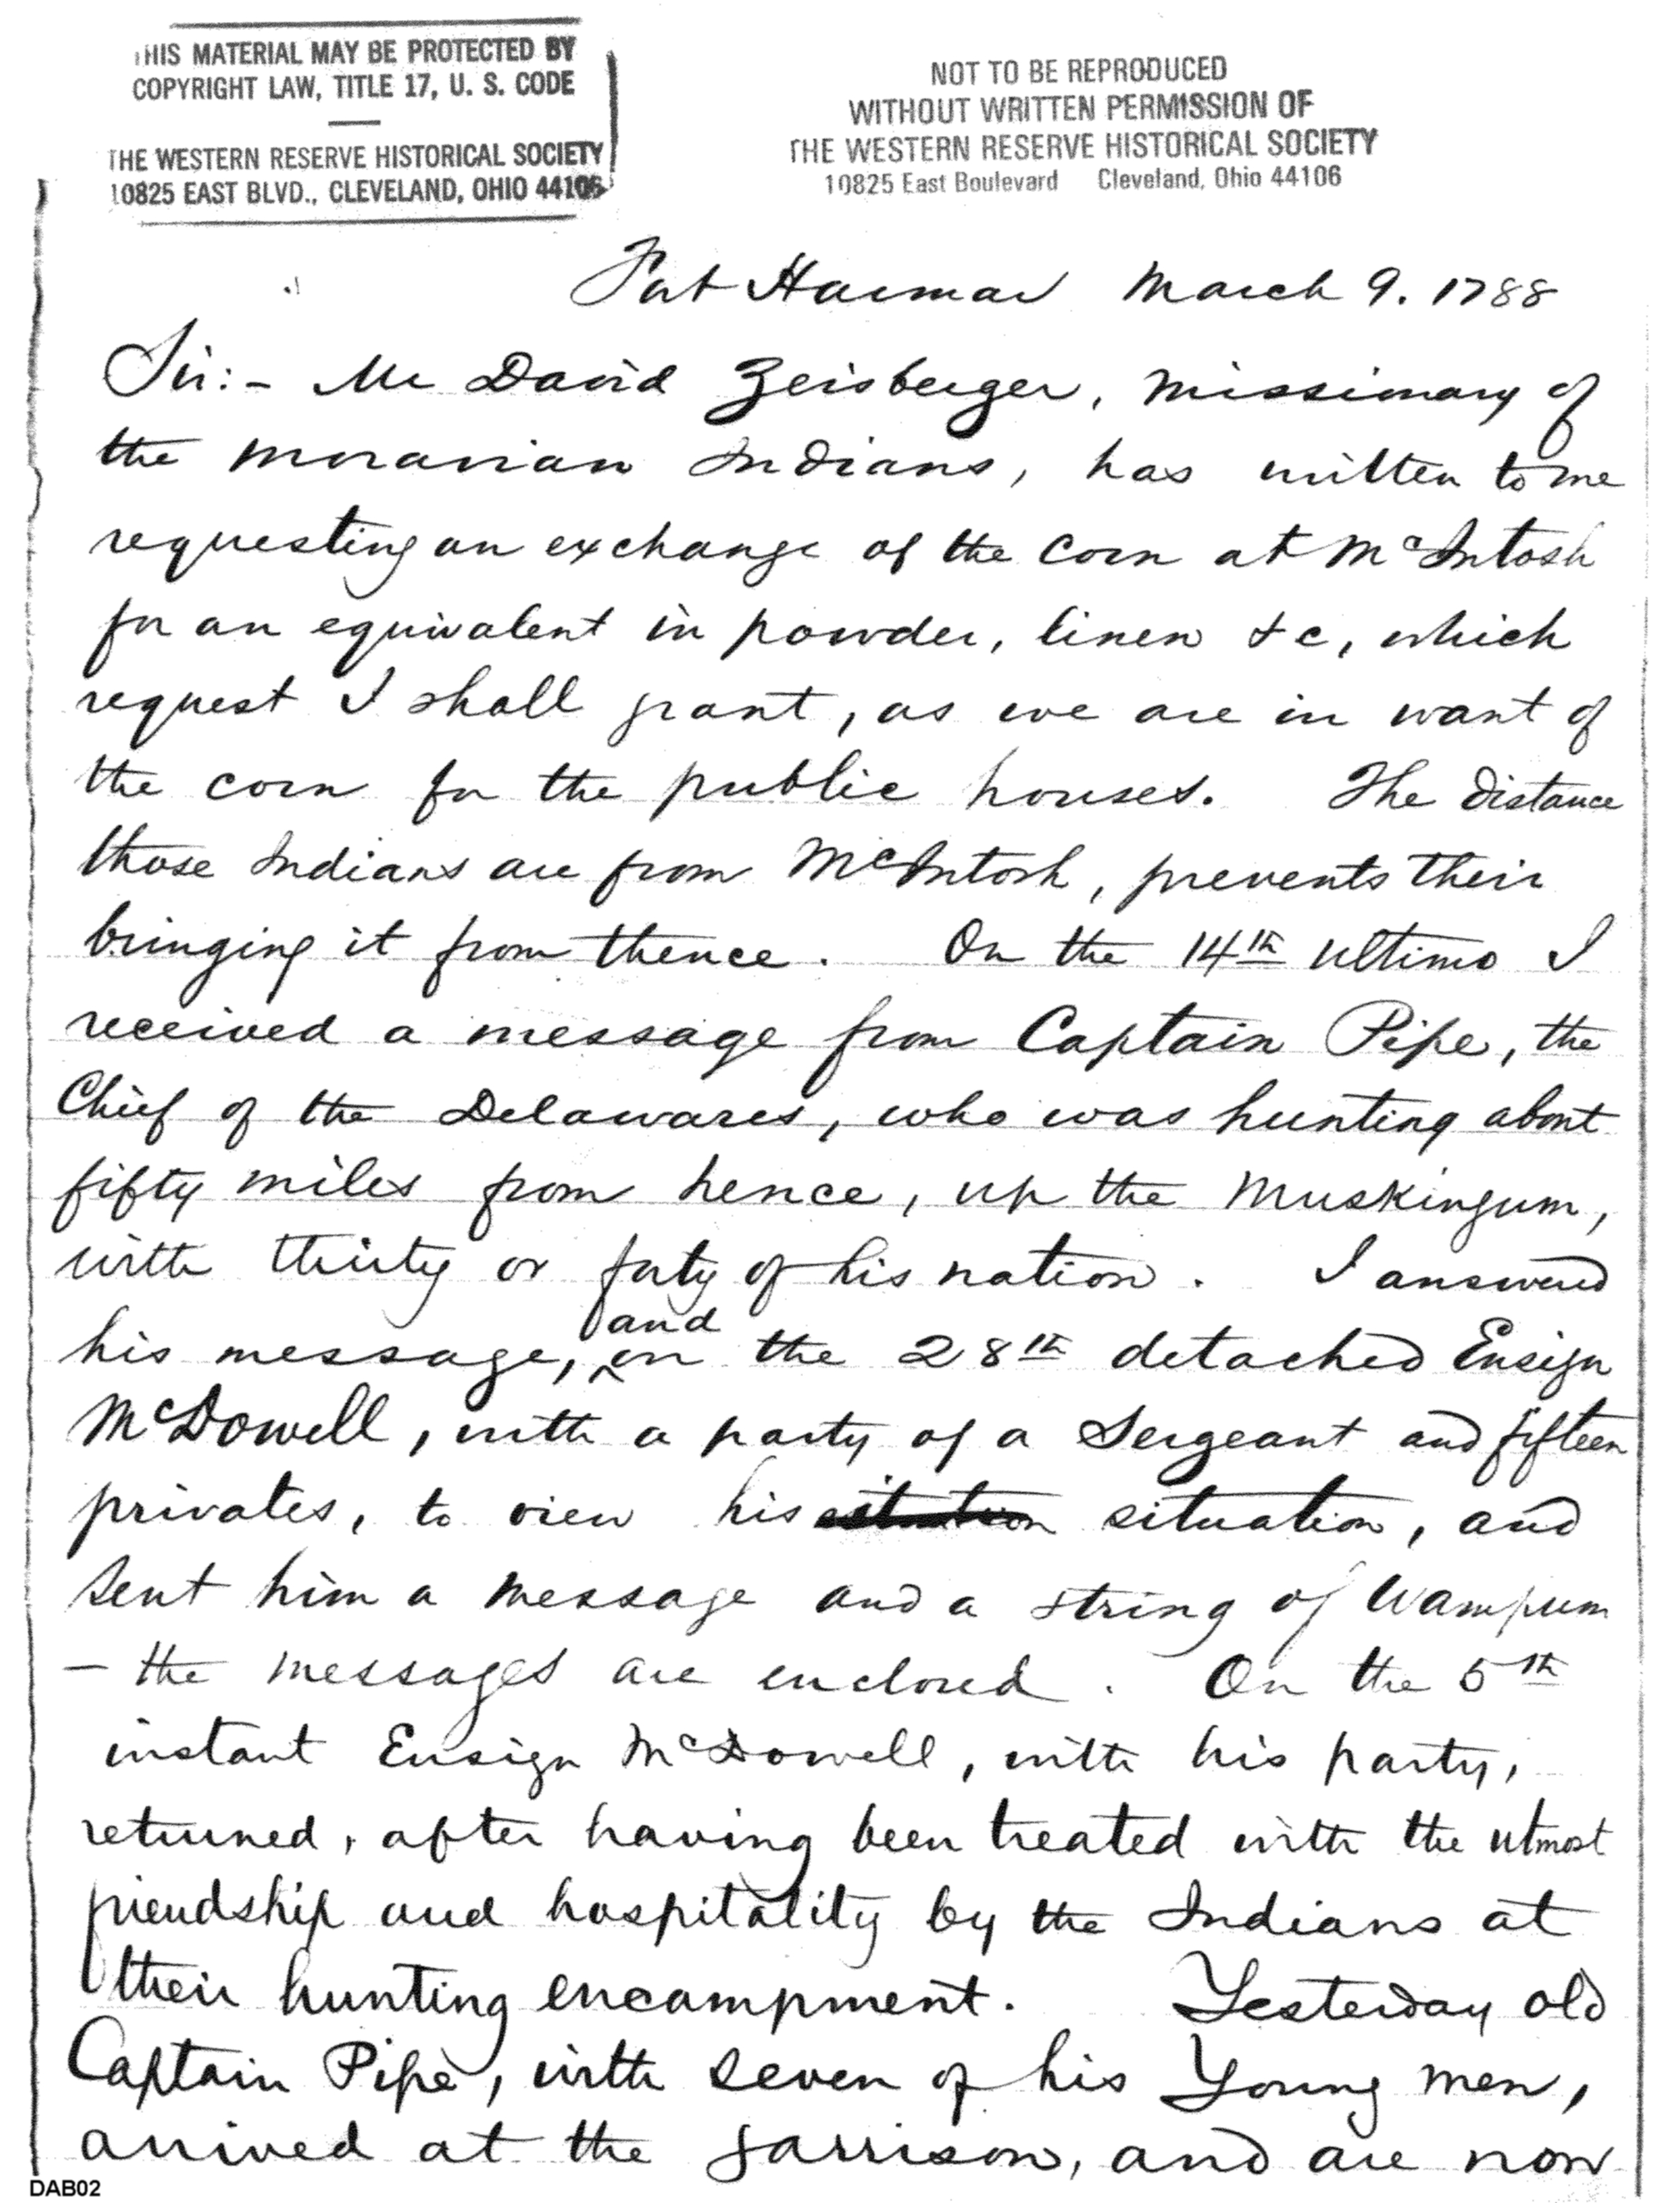 THIS MATERIAL MAY BE PROTECTED BY
COPYRIGHT LAW, TITLE 17, U. S. CODE
THE WESTERN RESERVE HISTORICAL SOCIETY
10825 EAST BLVD., CLEVELAND, OHIO 44106
NOT TO BE REPRODUCED
WITHOUT WRITTEN PERMISSION OF
THE WESTERN RESERVE HISTORICAL SOCIETY
10825 East Boulevard Cleveland, Ohio 44106
Fort Harmar March 9. 1788
Sir:- Mr David Zeisberger, Missionary of
the Moravian Indians, has written to me
requesting an exchange of the corn at McIntosh
for an equivalent in powder, linen &c, which
request I shall grant, as we are in want of
the corn for the public houses. The distance
those Indians are from McIntosh, prevents their
bringing it from thence. On the 14th ultimo I
received a message from Captain Pipe, the
Chief of the Delawares, who was hunting about
fifty miles from hence, up the Muskingum,
with thirty or forty of his nation. I answered
his message, and on the 28th detached Ensign
McDowell, with a party of a Sergeant and fifteen
privates, to view his situation situation, and
sent him a message and a string of Wampum
- the messages are enclosed. On the 5th
instant Ensign McDowell, with his party,
returned, after having been treated with the utmost
friendship and hospitality by the Indians at
their hunting encampment. Yesterday old
Captain Pipe, with seven of his Young men,
arrived at the garrison, and are now
DAB02